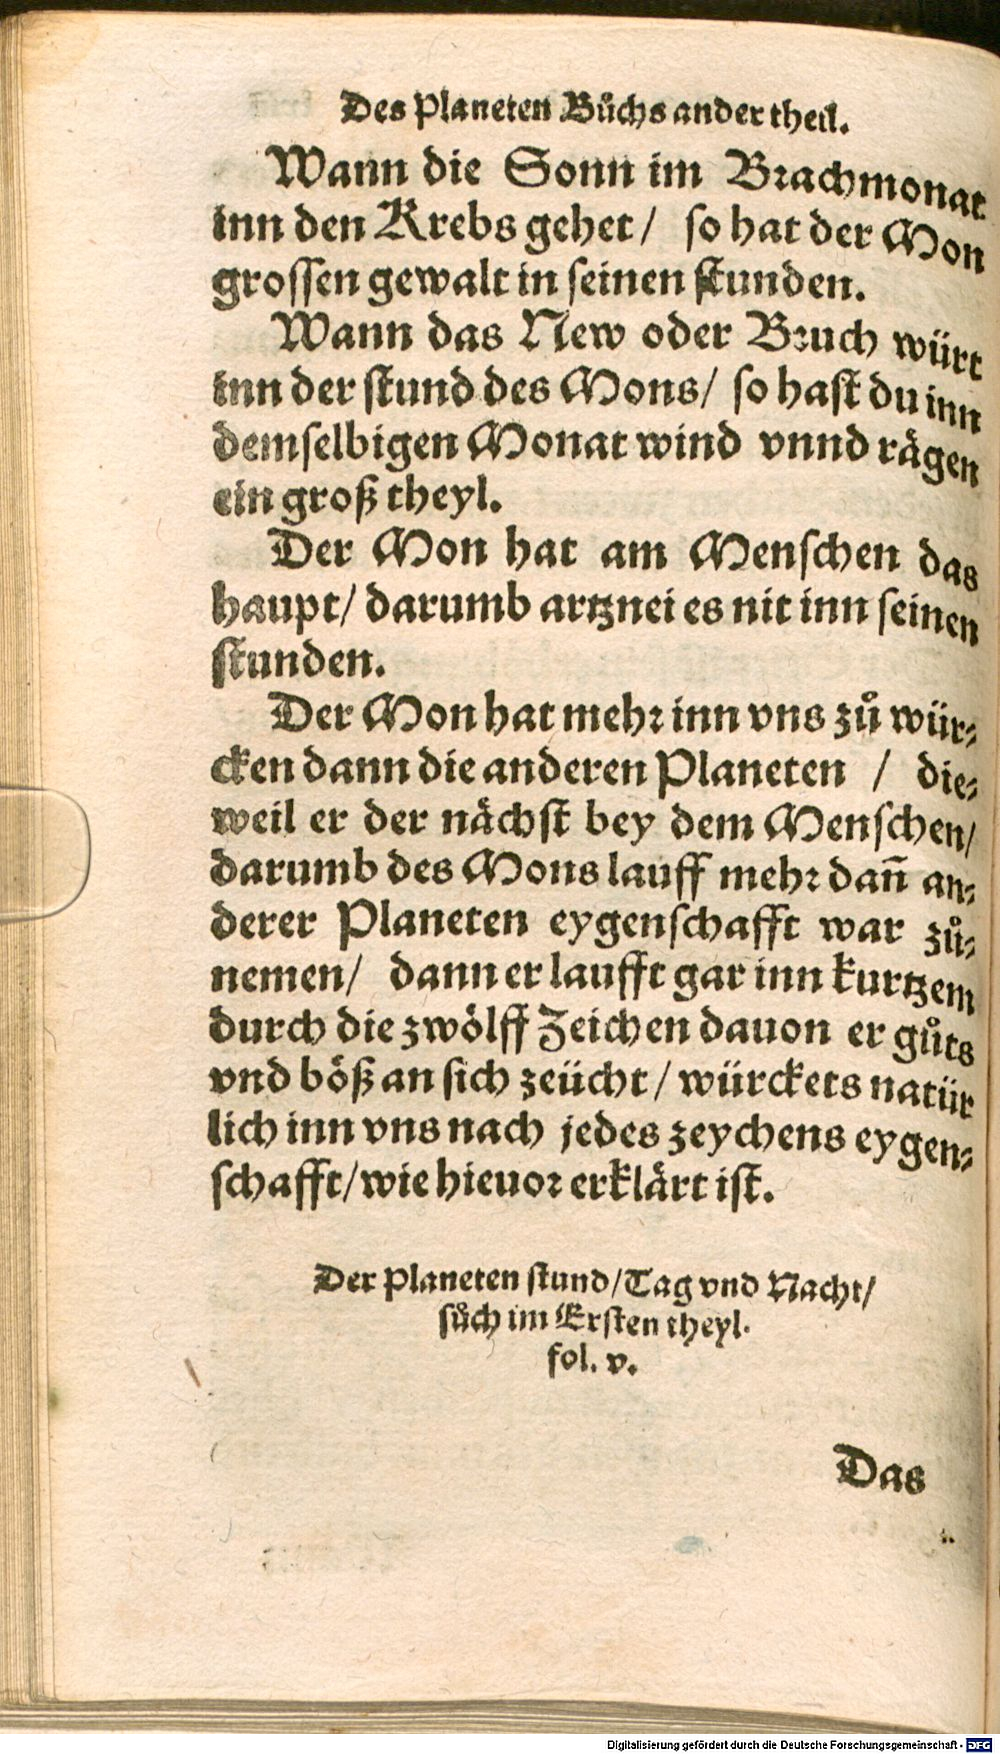 Des Planeten Bůchs ander theil.
Wann die Sonn im Brachmonat
inn den Krebs gehet / so hat der Mon
grossen gewalt in seinen stunden.
Wann das New oder Bruch würt
inn der stund des Mons / so hast du inn
demselbigen Monat wind vnnd rägen
ein groß theyl.
Der Mon hat am Menschen das
haupt / darumb artznei es nit inn seinen
stunden.
Der Mon hat mehr inn vns zů wür⸗
cken dann die anderen Planeten / die⸗
weil er der nächst bey dem Menschen /
darumb des Mons lauff mehr dañ an⸗
derer Planeten eygenschafft war zů⸗
nemen / dann er laufft gar inn kurtzem
durch die zwölff Zeichen dauon er gůts
vnd böß an sich zeücht / würckets natür
lich inn vns nach jedes zeychens eygen⸗
schafft / wie hieuor erklärt ist.
Der Planeten stund / Tag vnd Nacht /
sůch im Ersten theyl.
fol. v.
Das
Digitalisierung gefördert durch die Deutsche Forschungsgemeinschaft - DFG